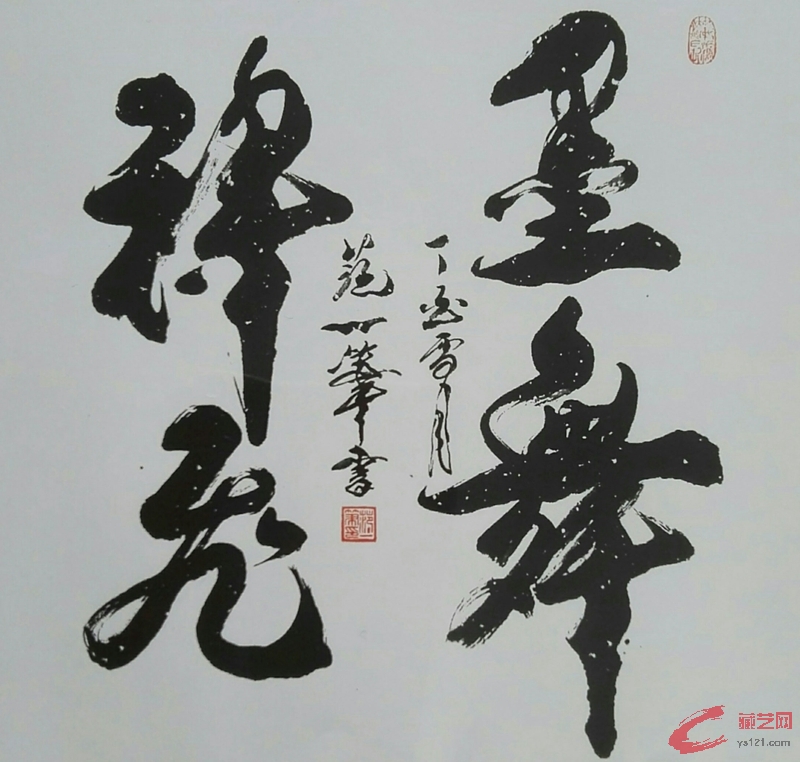 墨舞
神飞
丁酉雪月
范一笔书
藏艺网
ys121.com